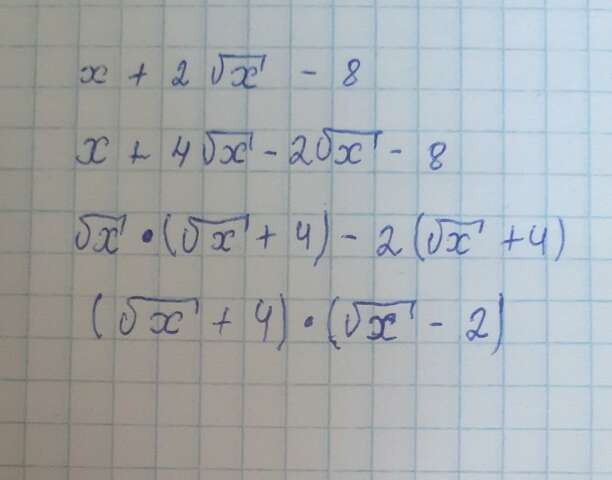 x + 2√x - 8
x + 4√x - 2√x - 8
√x • (√x + 4) - 2(√x + 4)
(√x + 4) • (√x - 2)